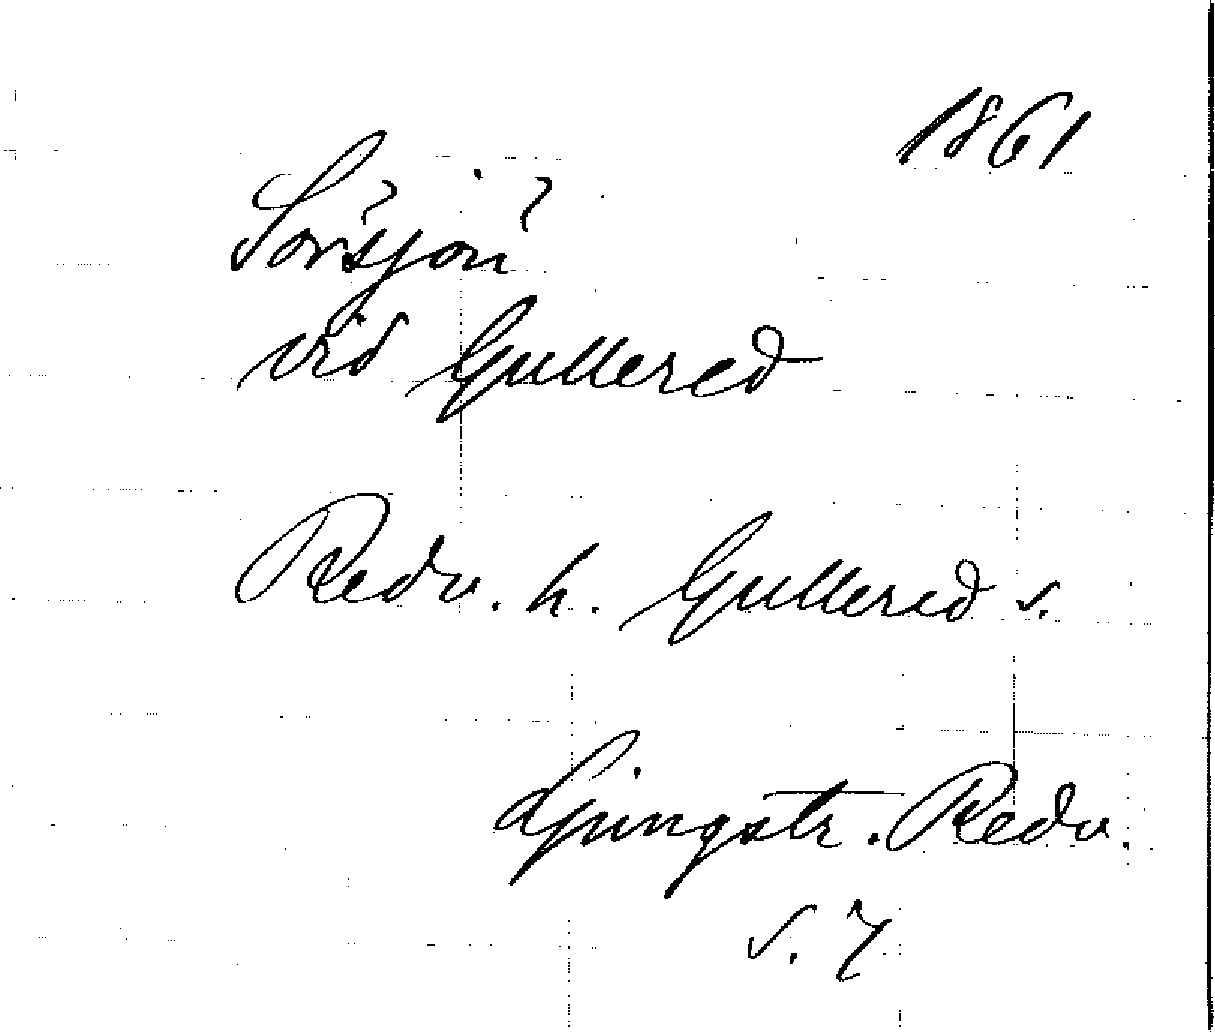 1861
Sörsjön
vid Gullered
Redv. h. Gullered s.
Ljungstr. Redv.
s. 7